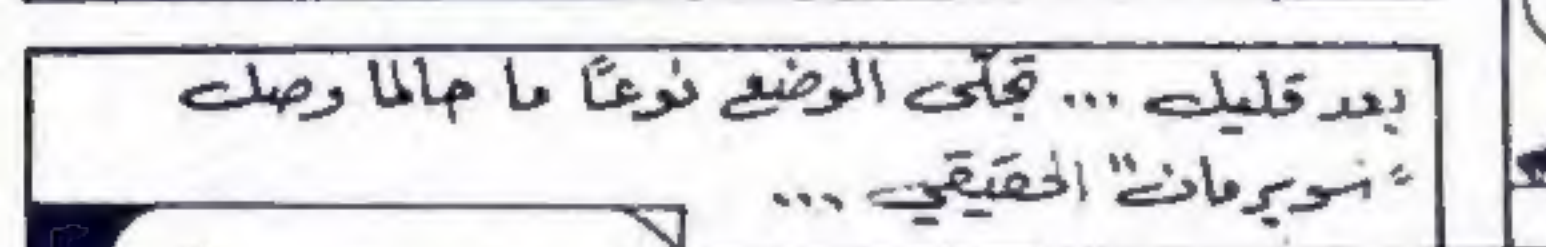 بعد قليل ... تجلّى الوضع نوعًا ما حالما وصل
"سوبرمان" الحقيقي ...